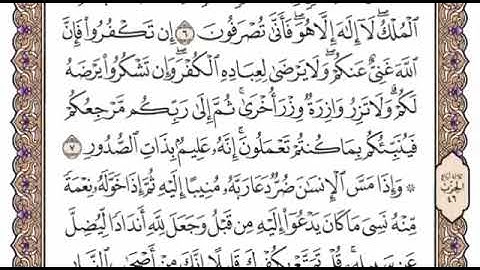 ٱلْمُلْكُ لَآ إِلَٰهَ إِلَّا هُوَ فَأَنَّىٰ تُصْرَفُونَ ٦ إِن تَكْفُرُوا۟ فَإِنَّ
ٱللَّهَ غَنِىٌّ عَنكُمْ وَلَا يَرْضَىٰ لِعِبَادِهِ ٱلْكُفْرَ وَإِن تَشْكُرُوا۟ يَرْضَهُ
لَكُمْ وَلَا تَزِرُ وَازِرَةٌ وِزْرَ أُخْرَىٰ ثُمَّ إِلَىٰ رَبِّكُم مَّرْجِعُكُمْ
فَيُنَبِّئُكُم بِمَا كُنتُمْ تَعْمَلُونَ إِنَّهُۥ عَلِيمٌۢ بِذَاتِ ٱلصُّدُورِ ٧
۞ وَإِذَا مَسَّ ٱلْإِنسَٰنَ ضُرٌّ دَعَا رَبَّهُۥ مُنِيبًا إِلَيْهِ ثُمَّ إِذَا خَوَّلَهُۥ نِعْمَةً
مِّنْهُ نَسِىَ مَا كَانَ يَدْعُوٓا۟ إِلَيْهِ مِن قَبْلُ وَجَعَلَ لِلَّهِ أَندَادًا لِّيُضِلَّ
عَن سَبِيلِهِۦ قُلْ تَمَتَّعْ بِكُفْرِكَ قَلِيلًا إِنَّكَ مِنْ أَصْحَٰبِ ٱلنَّارِ
الحزب
٤٦